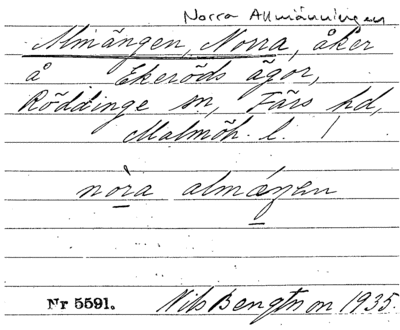 Norra Allmänningen
Almängen, Norra, åker
å Ekeröds ägor,
Röddinge sn, Färs hd,
Malmöh. l.
nòra almáŋen
Nr 5591. Nils Bengtsson 1935.